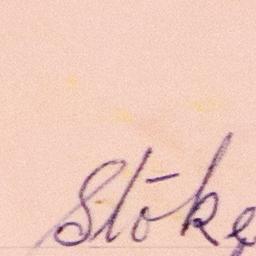 Stōke